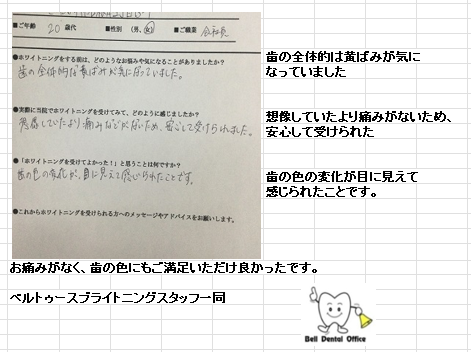 ■ご年齢 20 歳代 ■性別 (男、女) ■ご職業 会社員
●ホワイトニングをする前は、どのようなお悩みや気になることがありましたか？
歯の全体的な黄ばみが気になっていました。
●実際に当院でホワイトニングを受けてみて、どのように感じましたか？
想像していたより痛みなどがないため、安心して受けられました。
●「ホワイトニングを受けてよかった！」と思うことは何ですか？
歯の色の変化が、目に見えて感じられたことです。
●これからホワイトニングを受けられる方へのメッセージやアドバイスをお願いします。
歯の全体的は黄ばみが気に
なっていました
想像していたより痛みがないため、
安心して受けられた
歯の色の変化が目に見えて
感じられたことです。
お痛みがなく、歯の色にもご満足いただけ良かったです。
ベルトゥースブライトニングスタッフ一同
Bell Dental Office